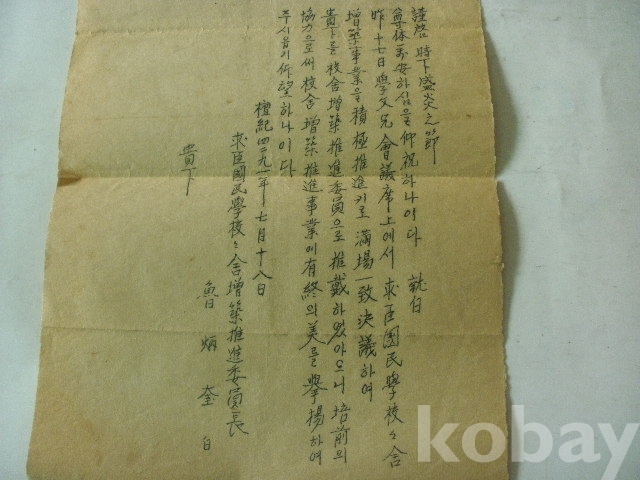 謹啓 時下盛炎之節
尊体萬安하심을 仰祝하나이다 就白
昨十七日 學父兄會議席上에서 求臣國民學校々舍
增築事業을 積極推進키로 滿場一致決議하여
貴下를 校舍增築推進委員으로 推戴하였아오니 倍前의
協力으로써 校舍增築推進事業에 有終의 美를 擧揚하여
주시옵기 仰望하나이다
檀紀四二九一年 七月十八日
求臣國民學校々舍增築推進委員長
魯炳奎 白
貴下
kobay